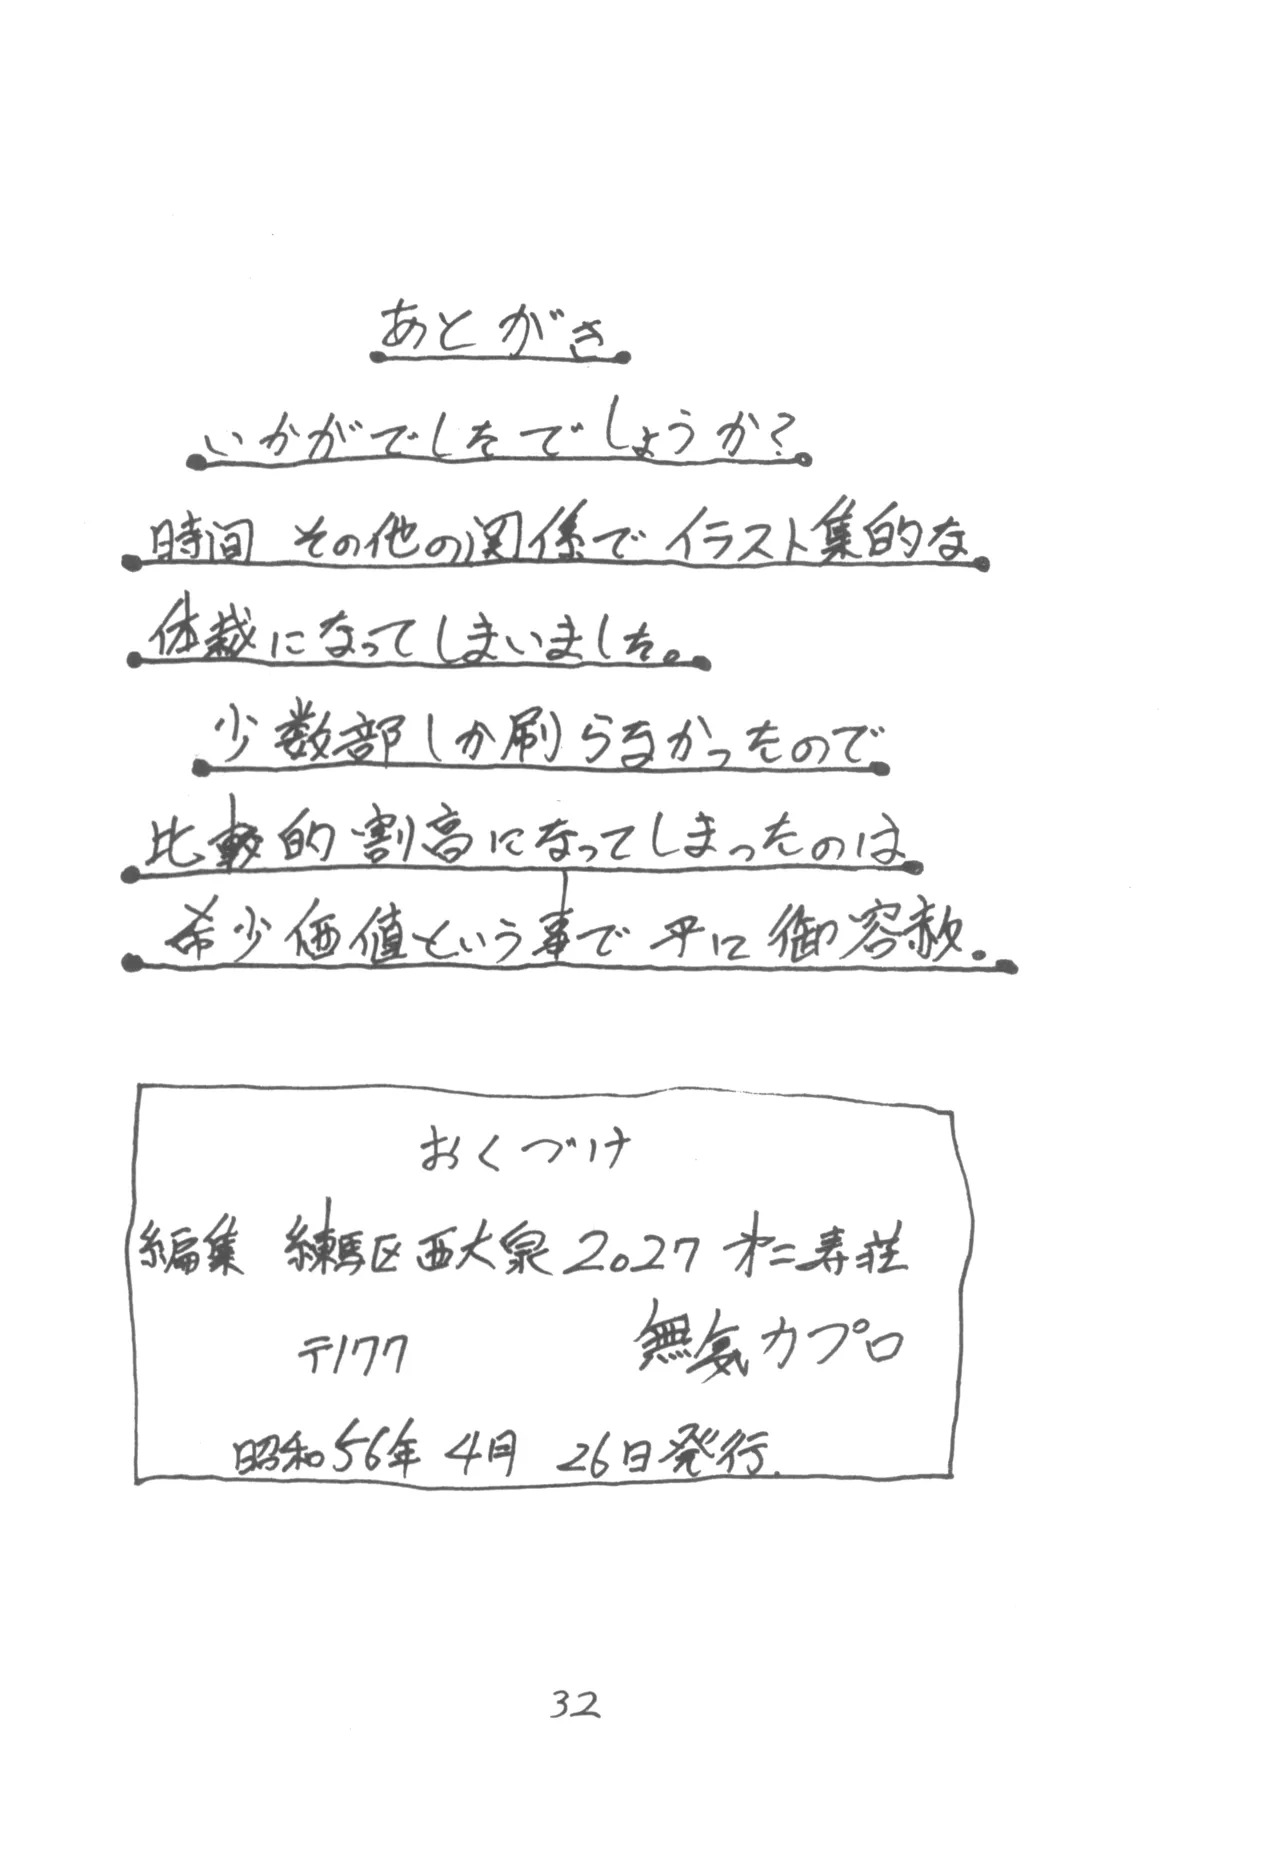 あとがき
いかがでしたでしょうか?
時間 その他の関係でイラスト集的な
体裁になってしまいました。
少数部しか刷らなかったので
比較的割高になってしまったのは
希少価値という事で 平に 御容赦.
おくづけ
編集 練馬区西大泉2027 才二寿荘
〒177 無気力プロ
昭和56年 4月 26日発行.
32